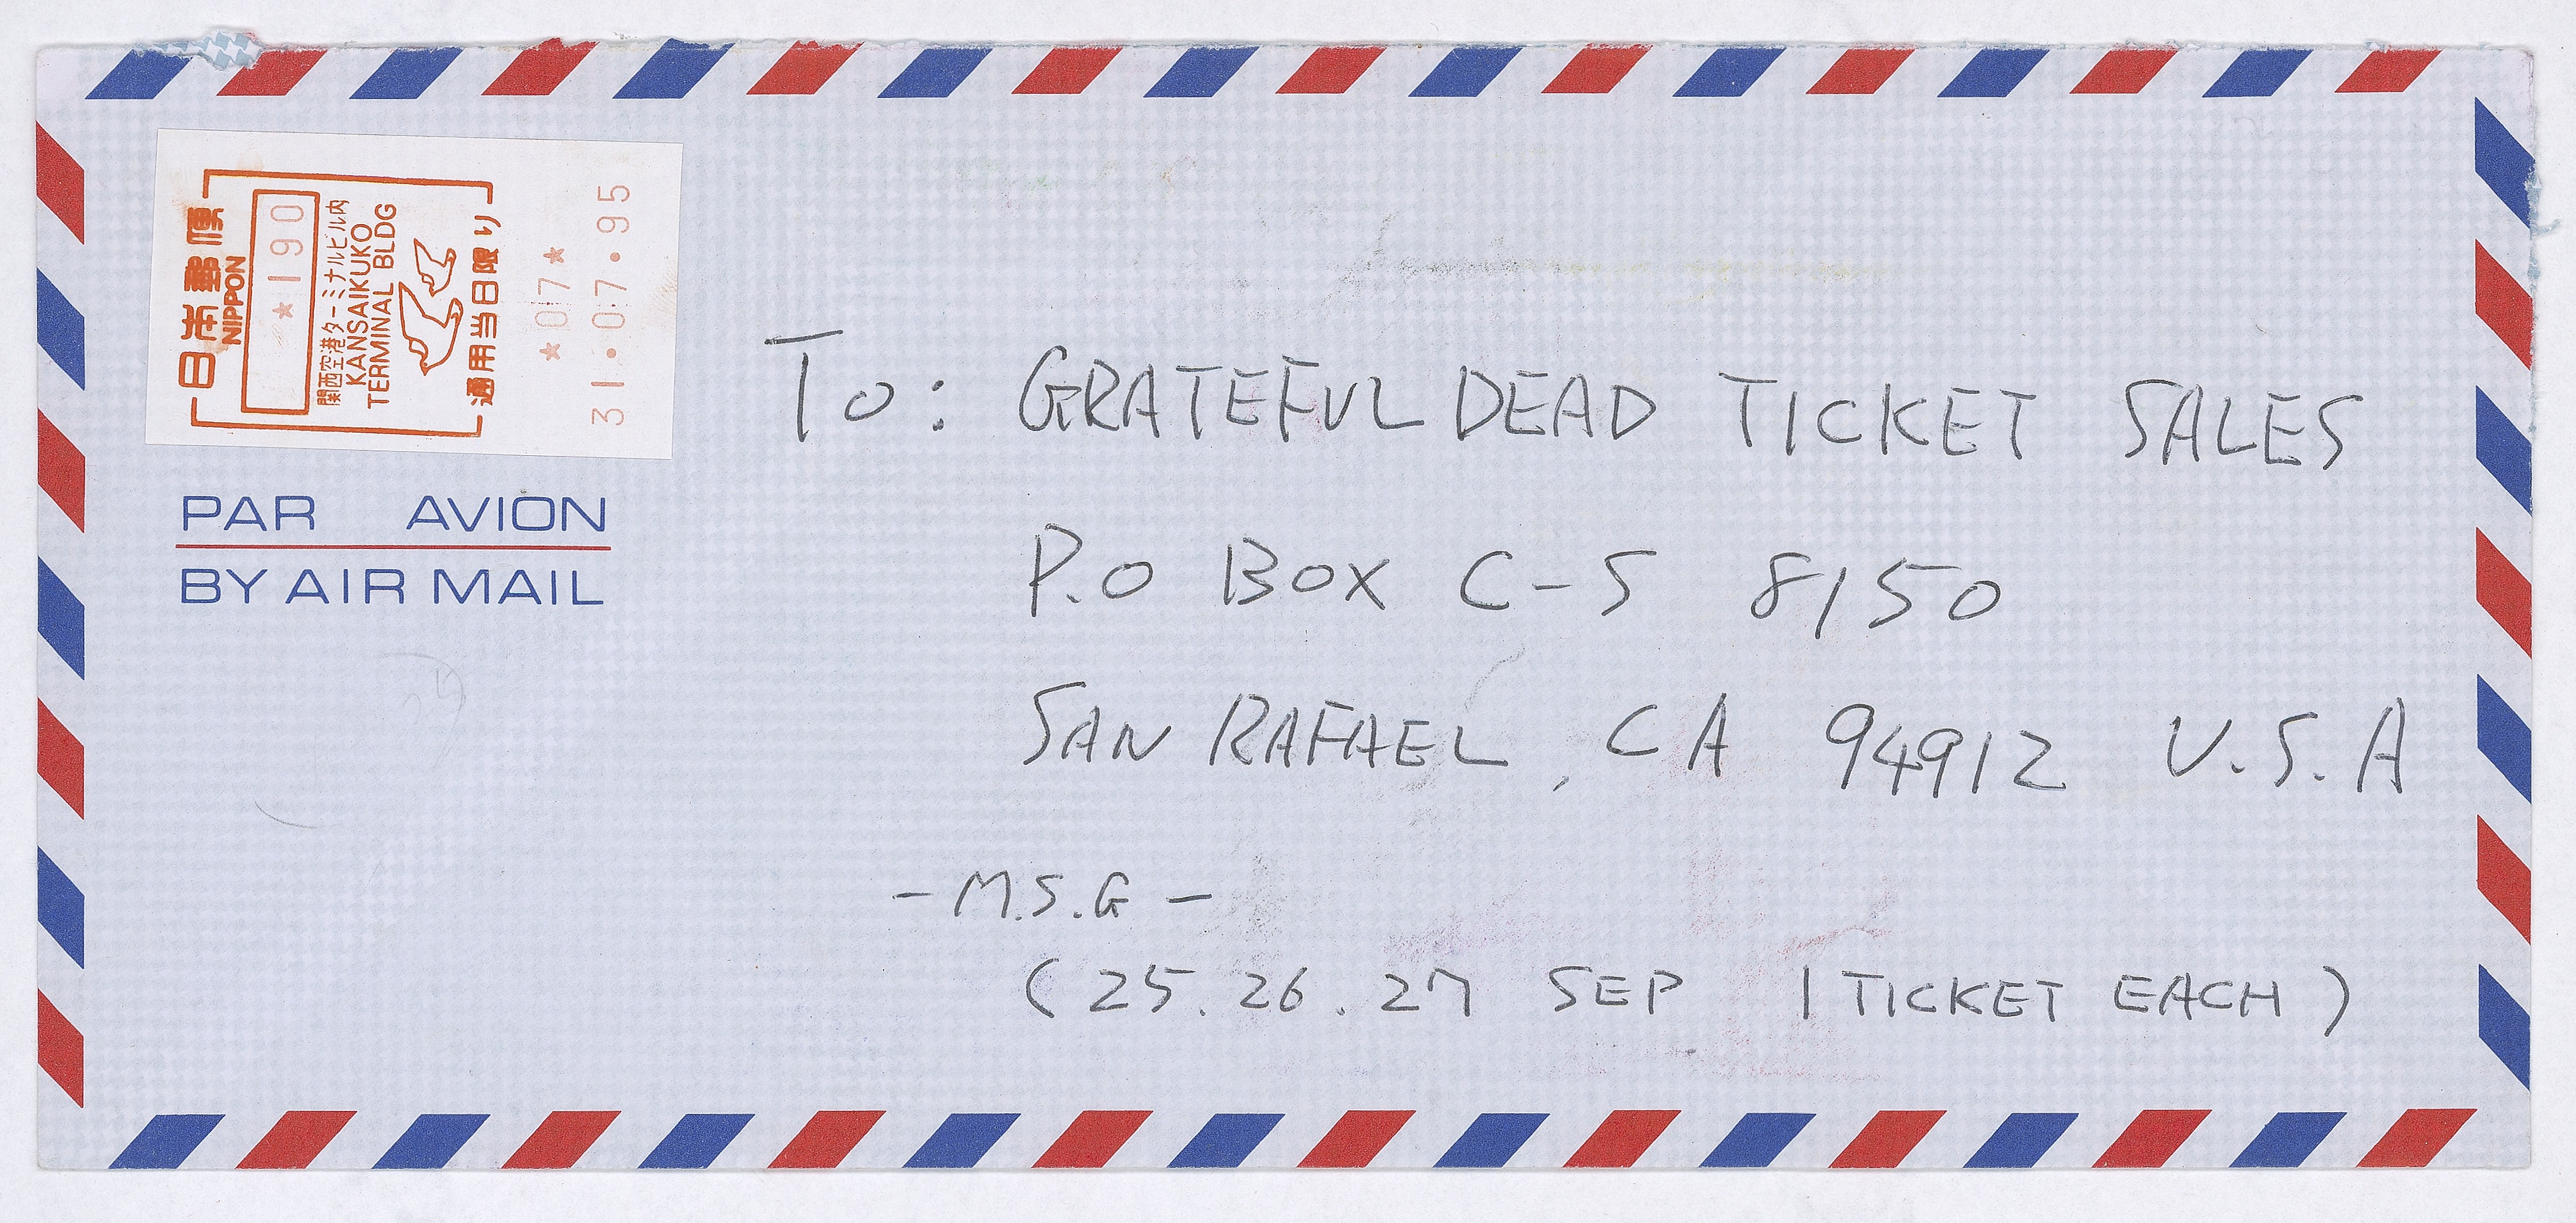 日本郵便
NIPPON
*190
関西空港ターミナルビル内
KANSAIKUKO
TERMINAL BLDG
通用当日限り
*07*
31.07.95
PAR AVION
BY AIR MAIL
To: GRATEFUL DEAD TICKET SALES
P.O BOX C-S 8150
SAN RAFAEL, CA 94912 U.S.A
- M.S.G -
(25.26.27 SEP 1 TICKET EACH)